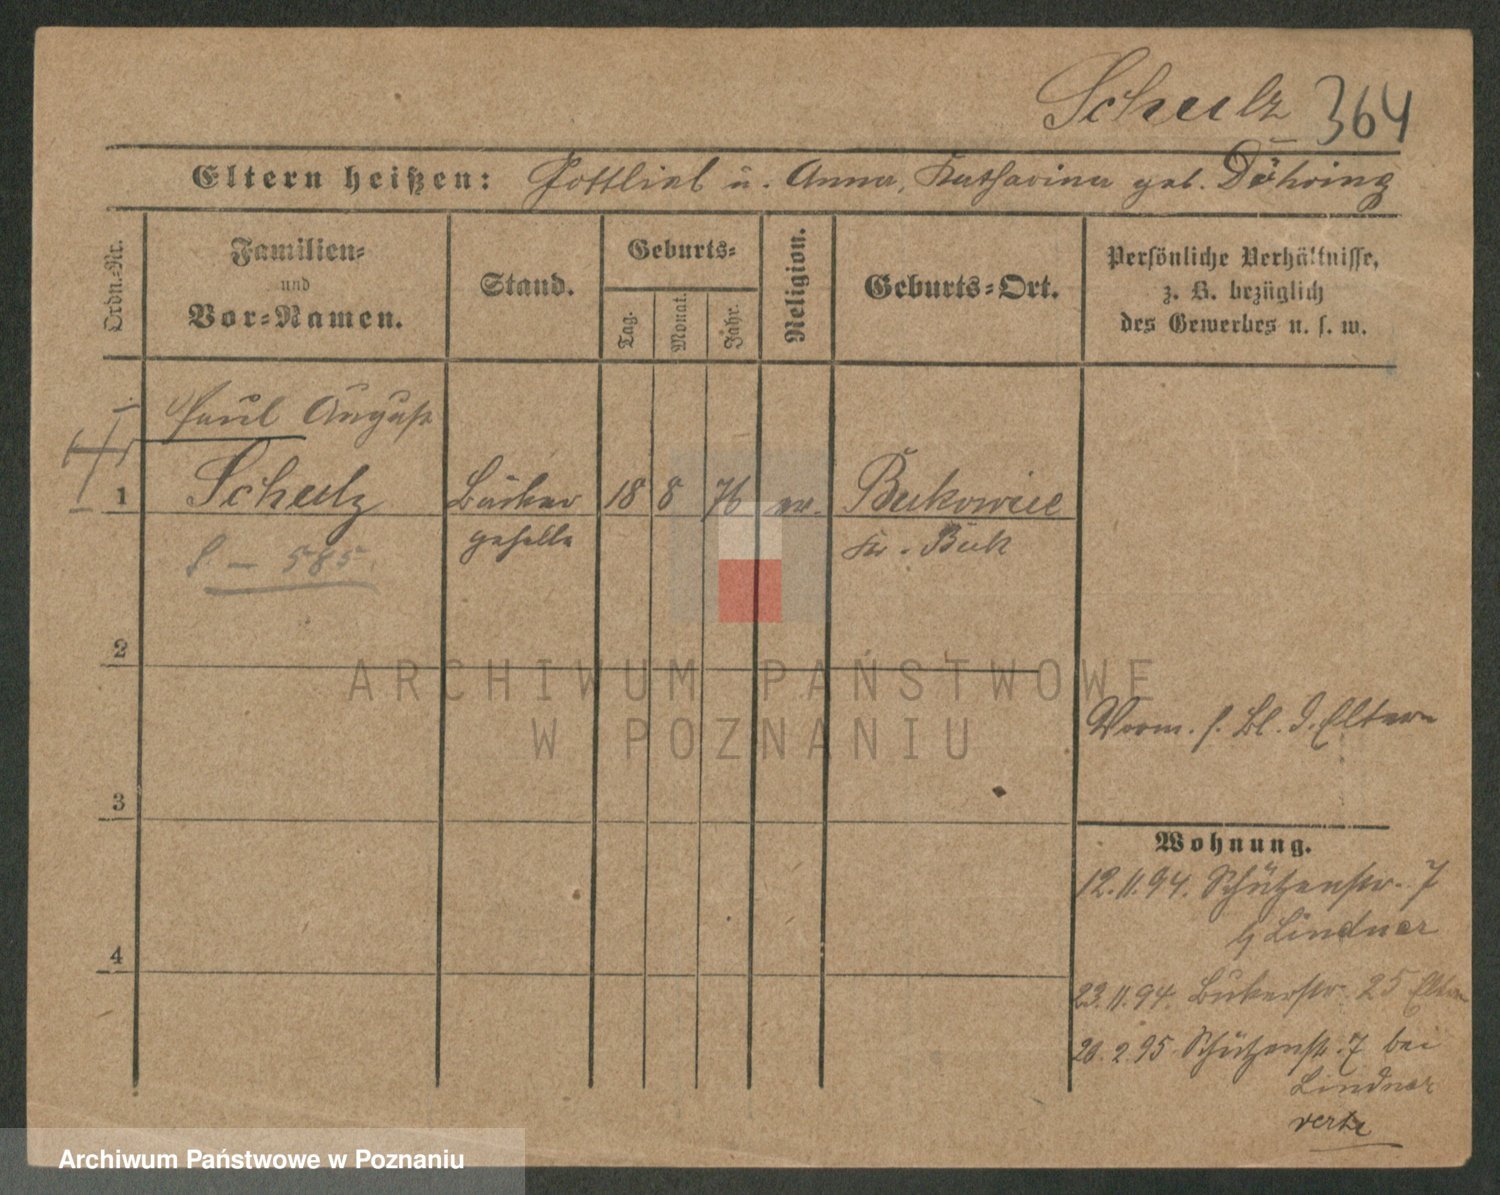 Schulz 364
Eltern heißen: Gottlieb u. Anna, Katharina geb. Döhring
Ordn.-Nr.
Familien-
und
Vor-Namen.
Stand.
Geburts-
Tag.
Monat.
Jahr.
Religion.
Geburts-Ort.
Persönliche Verhältnisse,
z. B. bezüglich
des Gewerbes u. s. w.
Paul August
1 Schulz Bäcker 18 8 76 ev. Bukowiec
geselle Kr. Buk
585.
2
ARCHIWUM PAŃSTWOWE
W POZNANIU
Vorm. s. Bl. d. Eltern
3
Wohnung.
12.11.94. Schützenstr. 7
Lindner
4
23.11.94. Bukerstr. 25 Eltern
20.2.95. Schützenstr. 7 bei
Lindner
verte
Archiwum Państwowe w Poznaniu